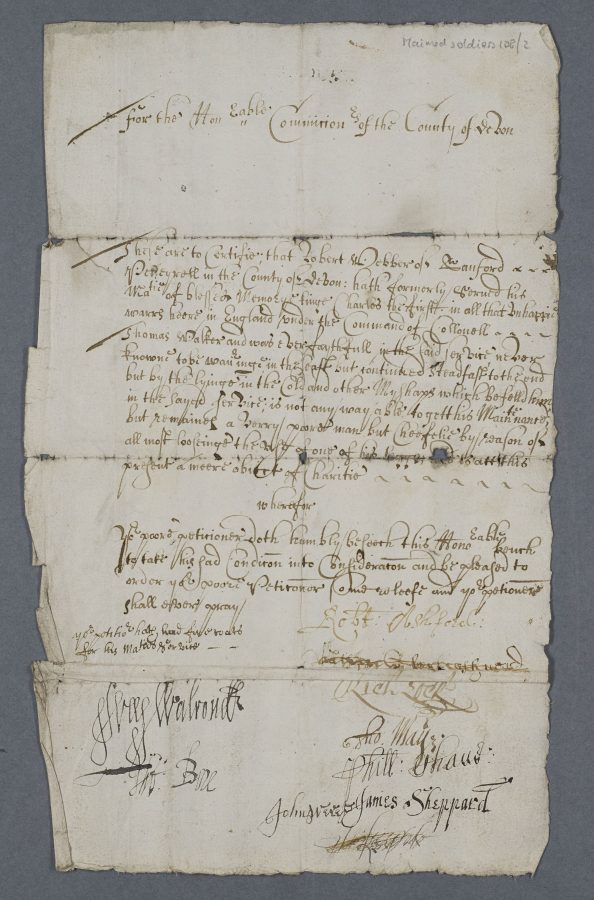 Maimed soldiers 108/2
For the Honable Commicionrs of the County of devon
These are to Certifie, that Robert Webber of Sanford
Peveyrell in the County of devon: hath formerly served his
Matie of blessed Memorye Kinge Charles the first in all that unhappie
warrs heere in England under the Command of Collonell
Thomas Walker and was ever faithfull in the said service never
knowne to be waveringe in the least but continued steadfast to the end
but by the lyinge in the Cold and other Myshaps which befell him
in the sayed service, is not any way able to gett his Maintenance
but remaines a verry poore man but cheeflie by reason of
all most looseinge the use of one of his att this
present a meere object of Charitie
wherefore
Yr poore peticioner doth humbly beseech this Honoable bench
to take his sad Condicon into Consideration and be pleased to
order yor poore Peticonor some releefe and yor petitioner
shall ever pray
yor petitior hath
for his Maties Service
Robt: Ashford:
Rich:
Walronde
Tho: May:
Phill:
James Sheppard
John